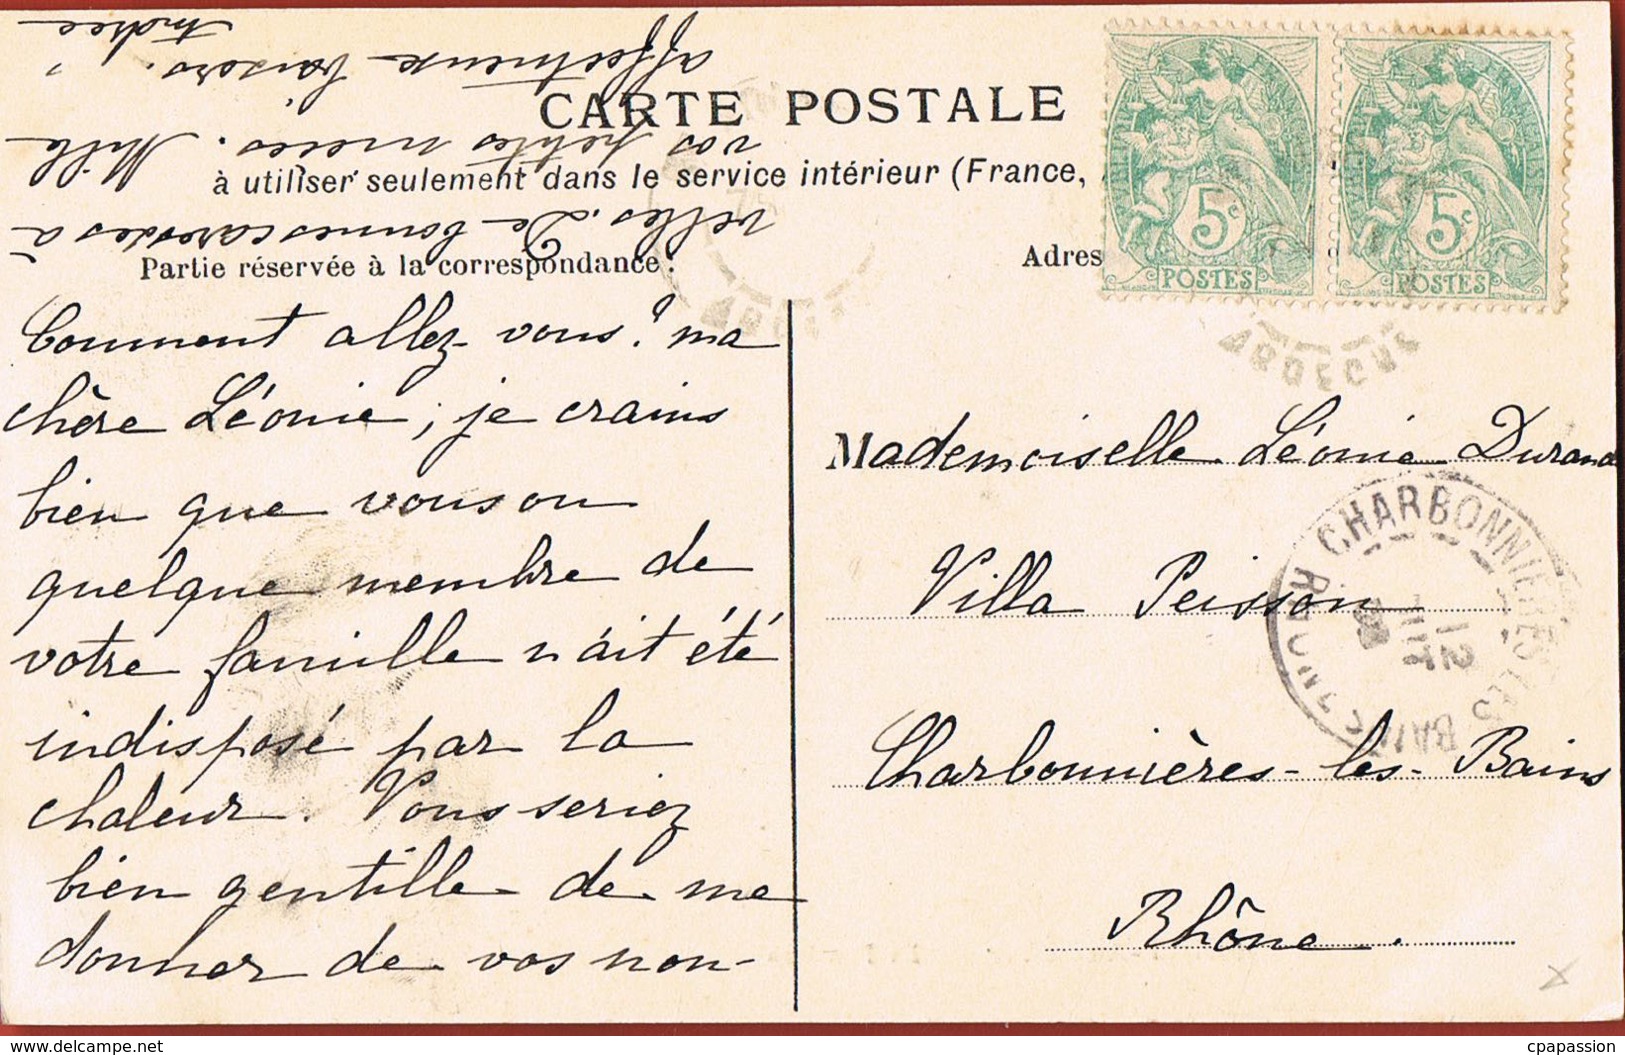 CARTE POSTALE
à utiliser seulement dans le service intérieur (France,
Partie réservée à la correspondance.
Adres
Comment allez-vous? ma
chère Léonie, je crains
bien que vous ou
quelque membre de
votre famille n'ait été
indisposé par la
chaleur. Vous seriez
bien gentille de me
donner de vos nou-
velles. De bonnes caresses à
vos petites nièces. Mille
affectueux baisers.
Andrée
5c
POSTES
5c
POSTES
ARDECHE
Mademoiselle Léonie Durand
Villa Peisson
Charbonnières-les-Bains
Rhône.
CHARBONNIERES LES BAINS
RHONE
12
08
https://www.delcampe.net
cpapassion